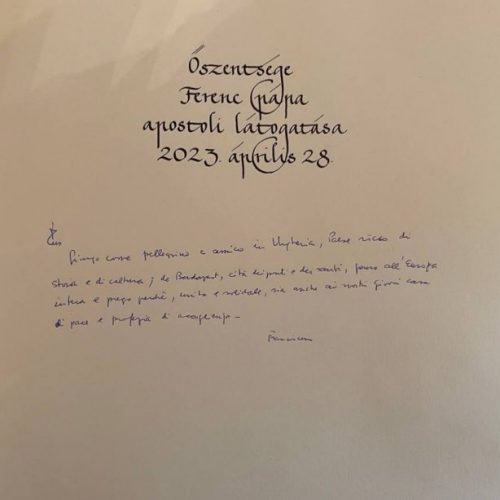 Őszentsége
Ferenc pápa
apostoli látogatása
2023. április 28.
Giungo come pellegrino e amico in Ungheria, Paese ricco di
storia e di cultura; da Budapest, città dei ponti e dei santi, penso all'Europa
intera e prego perché, unita e solidale, sia anche ai nostri giorni casa
di pace e profezia di accoglienza.
Franciscus